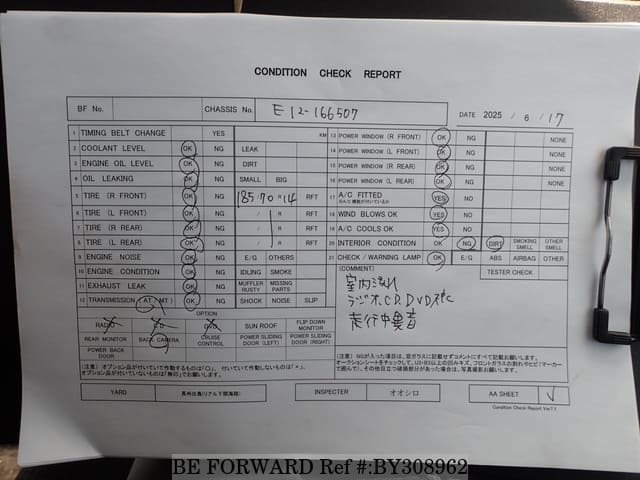 CONDITION CHECK REPORT
BF No. CHASSIS No. E12-166507 DATE 2025 / 6 / 17
1 TIMING BELT CHANGE YES KM
2 COOLANT LEVEL OK NG LEAK
3 ENGINE OIL LEVEL OK NG DIRT
4 OIL LEAKING OK NG SMALL BIG
5 TIRE (R FRONT) OK NG 185/70R14 RFT
6 TIRE (L FRONT) OK NG / R RFT
7 TIRE (R REAR) OK NG / R RFT
8 TIRE (L REAR) OK NG / R RFT
9 ENGINE NOISE OK NG E/G OTHERS
10 ENGINE CONDITION OK NG IDLING SMOKE
11 EXHAUST LEAK OK NG MUFFLER RUSTY MISSING PARTS
12 TRANSMISSION (AT/MT) OK NG SHOCK NOISE SLIP
13 POWER WINDOW (R FRONT) OK NG NONE
14 POWER WINDOW (L FRONT) OK NG NONE
15 POWER WINDOW (R REAR) OK NG NONE
16 POWER WINDOW (L REAR) OK NG NONE
17 A/C FITTED YES NO
18 WIND BLOWS OK YES NO
19 A/C COOLS OK YES NO
20 INTERIOR CONDITION OK NG DIRT SMOKING SMELL OTHER SMELL
21 CHECK / WARNING LAMP OK E/G ABS AIRBAG OTHER
(COMMENT) TESTER CHECK
室内汚れ
ラジオ.CD.DVD
走行中異音
OPTION
RADIO CD DVD SUN ROOF FLIP DOWN MONITOR
REAR MONITOR BACK CAMERA CRUISE CONTROL POWER SLIDING DOOR (LEFT) POWER SLIDING DOOR (RIGHT)
POWER BACK DOOR
(注意) オプション品が付いていて作動するものは「○」、付いていて作動しないものは「×」、
オプション品が付いていないものは「無印」でお願いします。
(注意) NGが入った項目は、窓ガラスに記載せずコメントにすべて記載お願いします。
YARD INSPECTER オオシロ AA SHEET √
Condition Check Report Ver7.1
BE FORWARD Ref #:BY308962